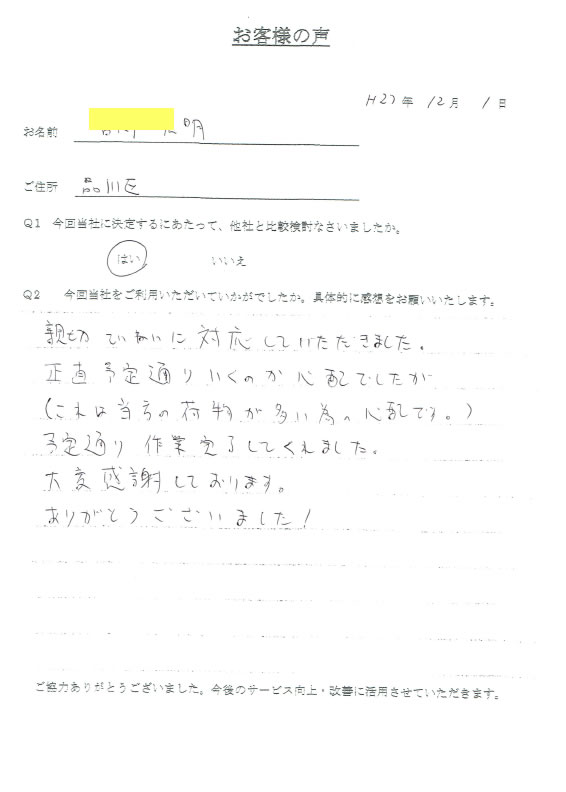 お客様の声
H27年 12月 1日
お名前 明
ご住所 品川区
Q1 今回当社に決定するにあたって、他社と比較検討なさいましたか。
はい いいえ
Q2 今回当社をご利用いただいていかがでしたか。具体的に感想をお願いいたします。
親切ていねいに対応していただきました。
正直予定通りいくのか心配でしたが
(これは当方の荷物が多い為の心配です。)
予定通り作業完了してくれました。
大変感謝しております。
ありがとうございました!
ご協力ありがとうございました。今後のサービス向上・改善に活用させていただきます。